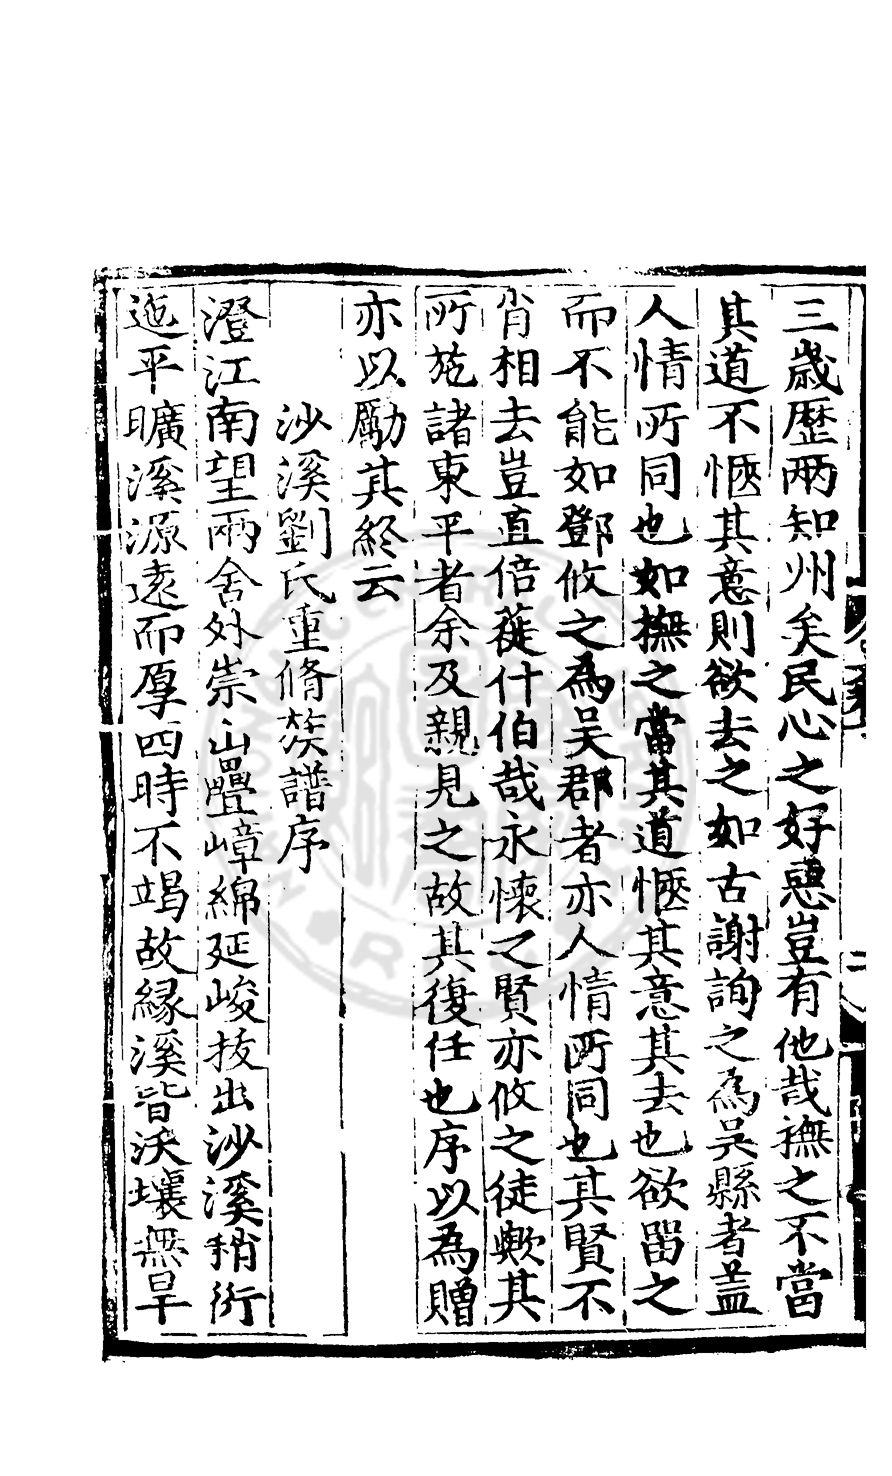 三歲歷兩知州矣民心之好惡豈有他哉撫之不當
其道不愜其意則欲去之如古謝詢之為吳縣者盖
人情所同也如撫之當其道愜其意其去也欲畱之
而不能如鄧攸之為吳郡者亦人情所同也其賢不
肖相去豈直倍蓰什伯哉永懷之賢亦攸之徒歟其
所施諸東平者余及親見之故其復任也序以為贈
亦以勵其終云
沙溪劉氏重脩族譜序
澄江南望兩舍外崇山疊嶂綿延峻拔出沙溪稍衍
迤平曠溪源遠而厚四時不竭故緣溪皆沃壤無旱